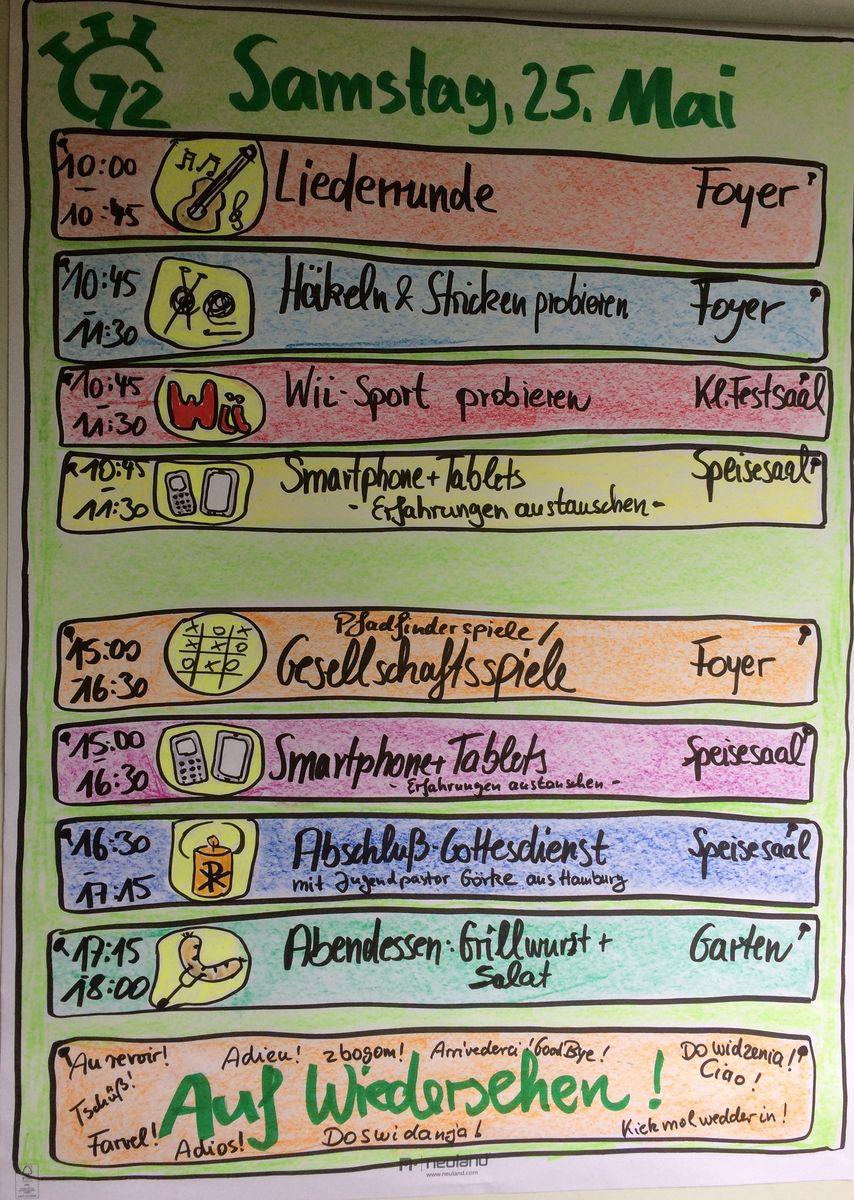 G2 Samstag, 25. Mai
10:00 - 10:45 Liederrunde Foyer
10:45 - 11:30 Häkeln & Stricken probieren Foyer
10:45 - 11:30 Wii Wii-Sport probieren Kl. Festsaal
10:45 - 11:30 Smartphone + Tablets Speisesaal
- Erfahrungen austauschen -
Pfadfinderspiele /
15:00 - 16:30 Gesellschaftsspiele Foyer
15:00 - 16:30 Smartphone + Tablets Speisesaal
- Erfahrungen austauschen -
16:30 - 17:15 Abschluß-Gottesdienst Speisesaal
mit Jugendpastor Görke aus Hamburg
17:15 18:00 Abendessen: Grillwurst + Garten
Salat
Au revoir! Adieu! zbogom! Arrivederci! Good Bye! Do widzenia!
Ciao!
Tschüß!
Auf Wiedersehen!
Farvel! Adios! Doswidanja! Kiek mol wedder in!
neuland
www.neuland.com